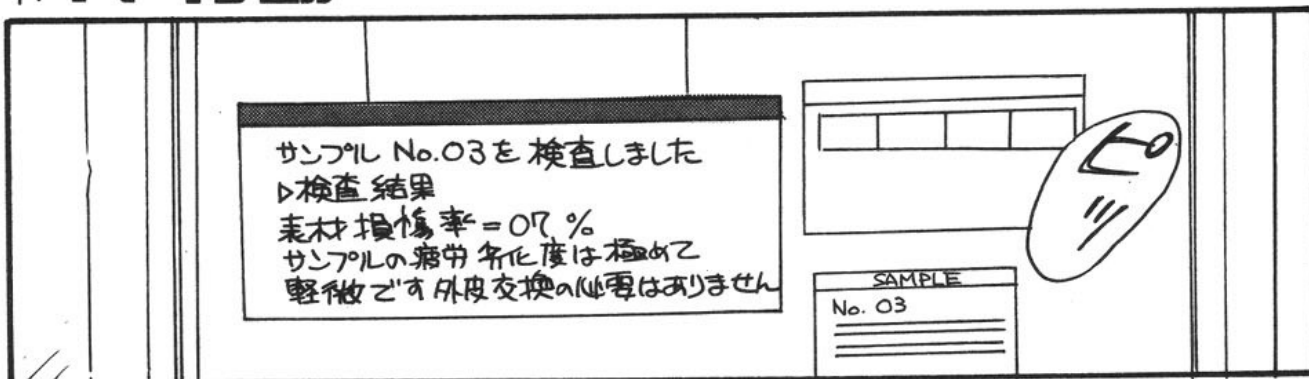 サンプル No.03を検査しました
▷検査結果
素材損傷率=07%
サンプルの疲労劣化度は極めて
軽微です外皮交換の必要はありません
ピッ
SAMPLE
No. 03